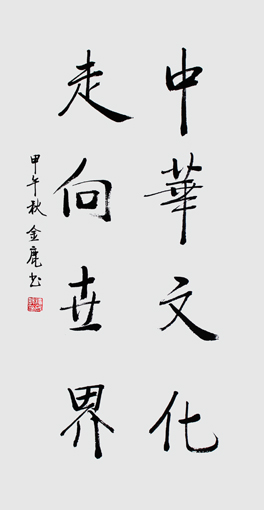 中華文化
走向世界
甲午秋金鹿书